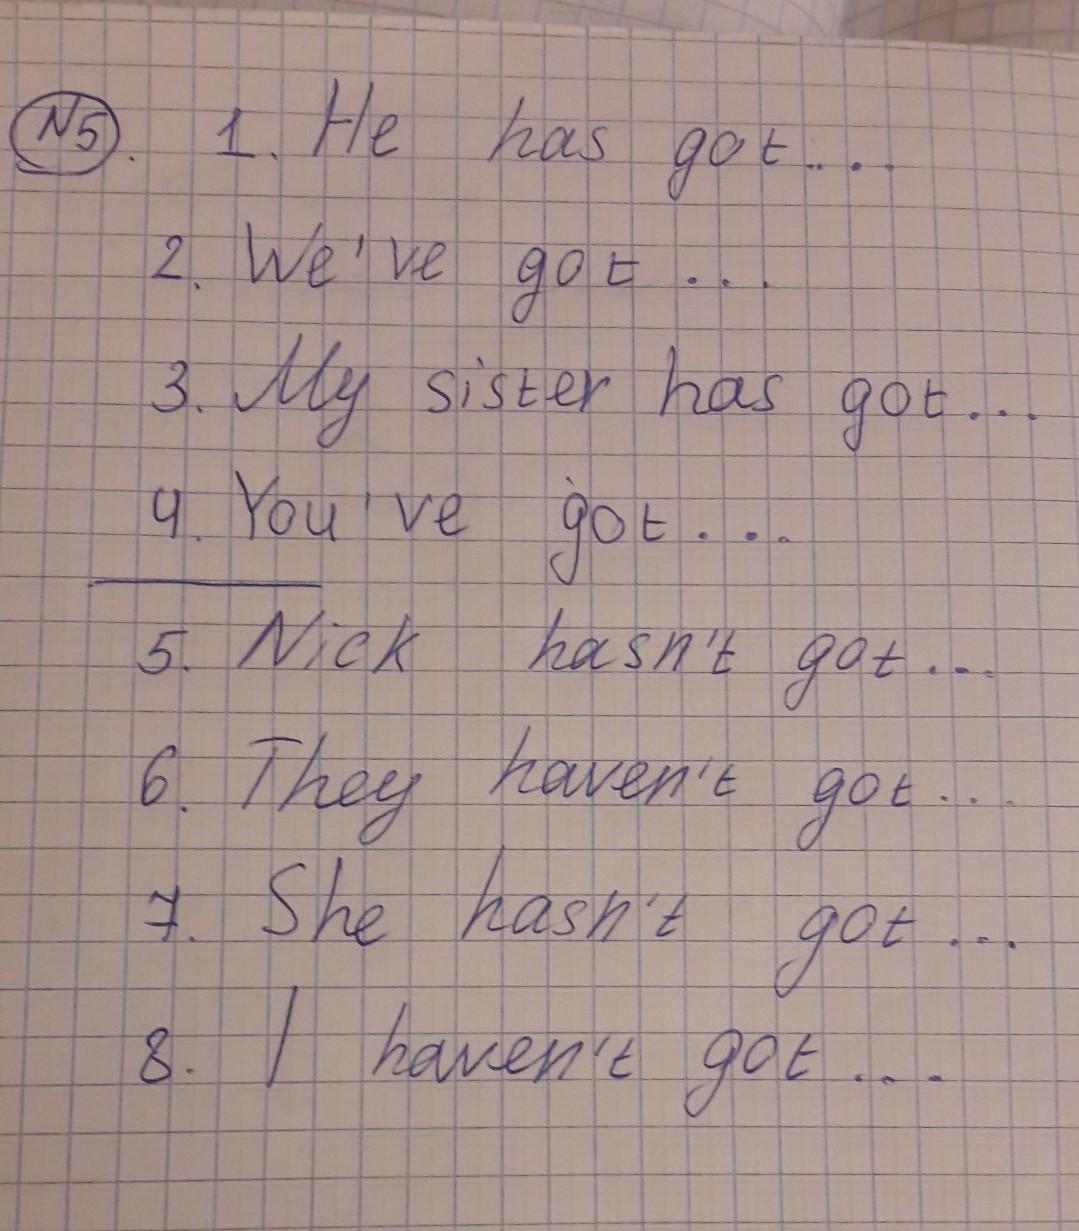 N5. 1. He has got...
2. We've got...
3. My sister has got...
4. You've got....
5. Nick hasn't got...
6. They haven't got...
7. She hasn't got...
8. I haven't got...